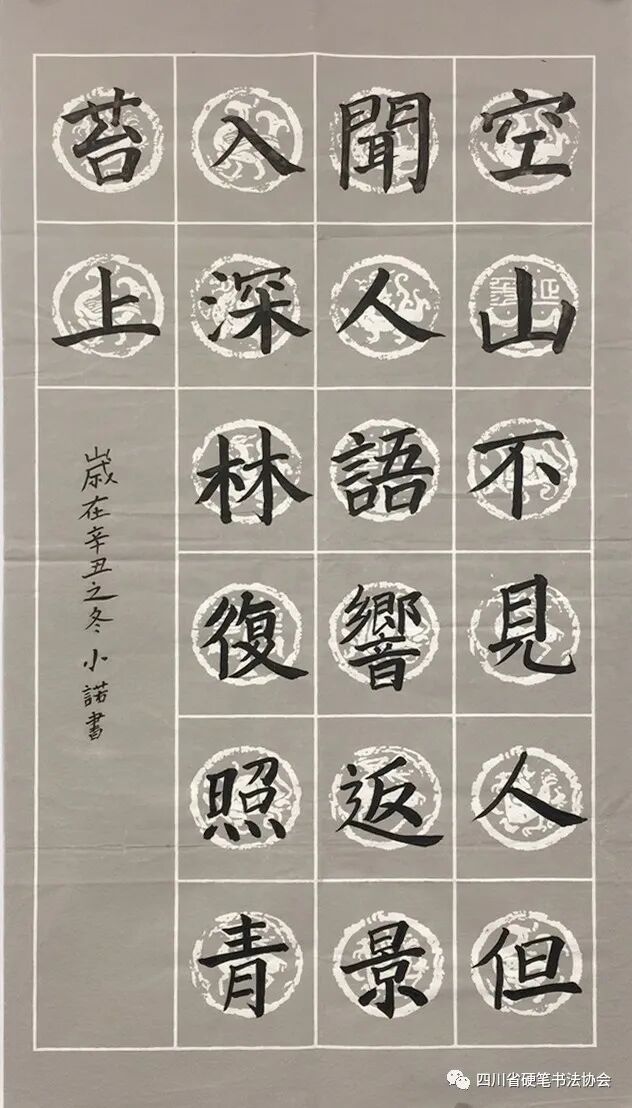 空山不見人但
聞人語響返景
入深林復照青
苔上
歲在辛丑之冬小諾書
四川省硬笔书法协会